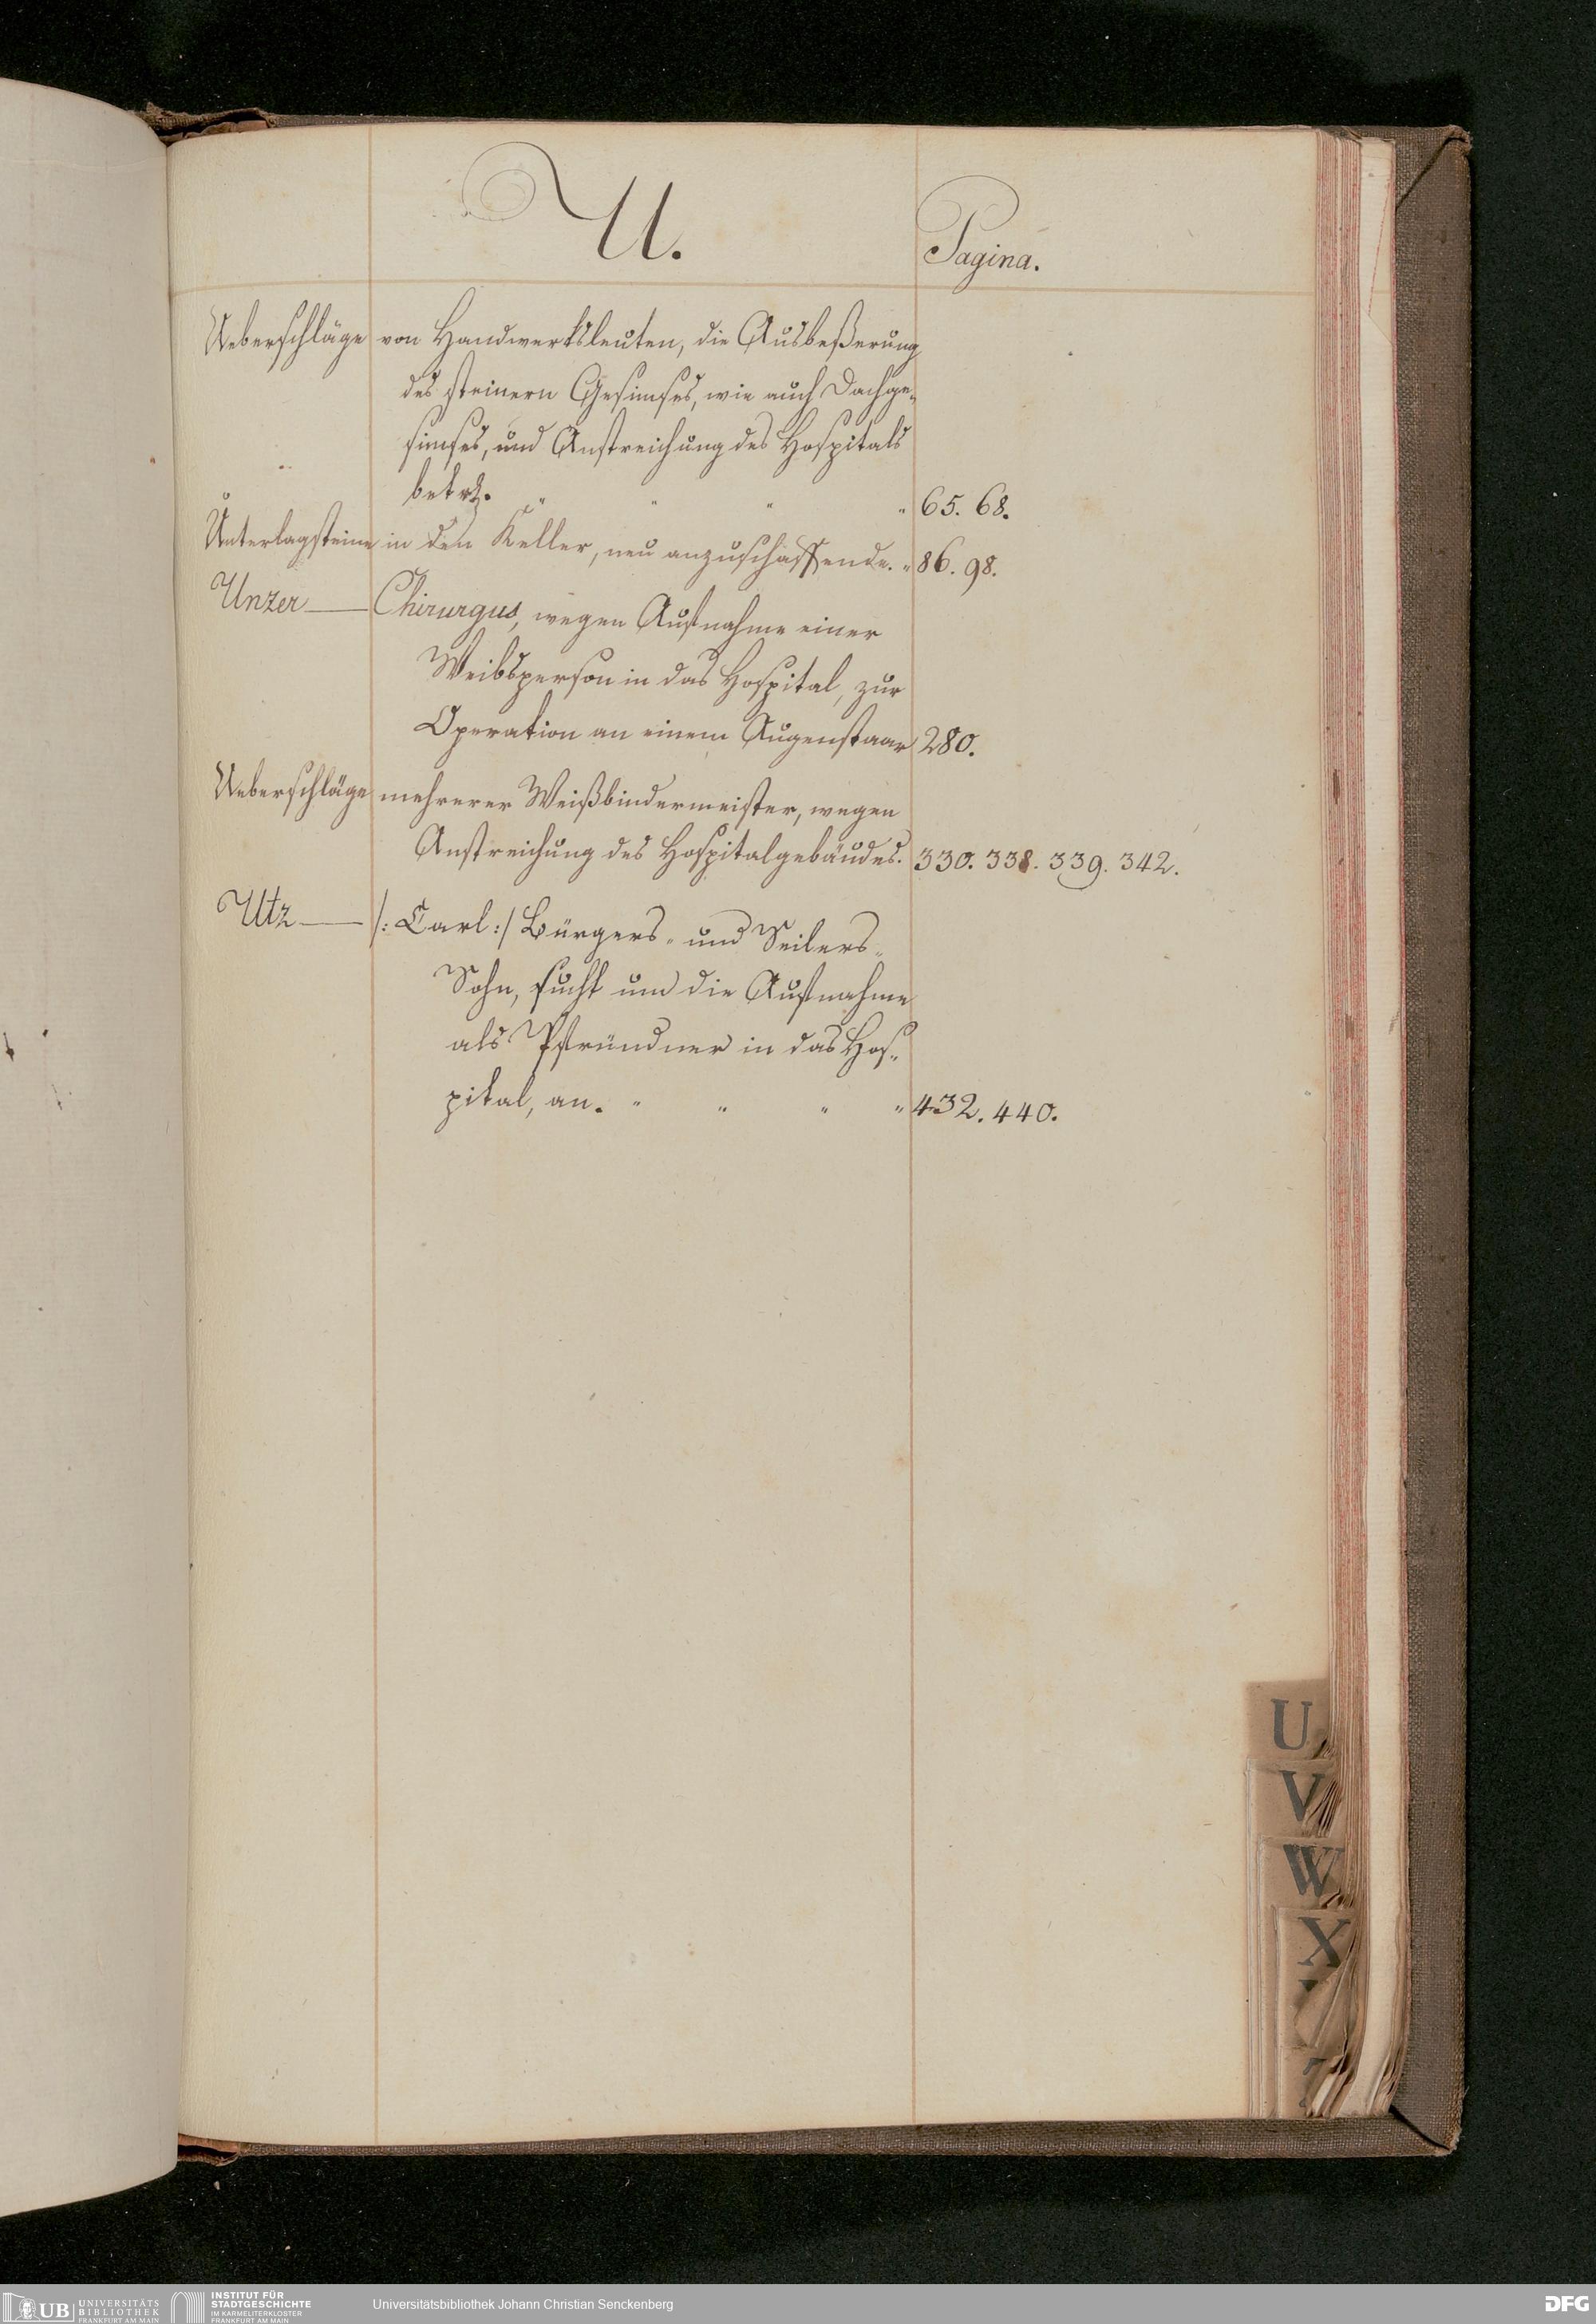 U.
Pagina.
Ueberschläge von Handwerksleuten, die Ausbeßerung
des steinern Gesimses, wie auch Dachge-
simses, und Anstreichung des Hospitals
betr. " " " " 65. 68.
Unterlagsteine in den Keller, neu anzuschaffende. " 86. 98.
Unzer — Chirurgus, wegen Aufnahme einer
Weibsperson in das Hospital, zur
Operation an einem Augenstaar 280.
Ueberschläge mehrerer Weißbindermeister, wegen
Anstreichung des Hospitalgebäudes. 330. 338. 339. 342.
Utz — /: Carl :/ Bürgers- und Seilers-
Sohn, sucht um die Aufnahme
als Pfründner in das Hos-
pital, an. " " " " 432. 440.
U
V
W
X
UB UNIVERSITÄTS
BIBLIOTHEK
FRANKFURT AM MAIN
INSTITUT FÜR
STADTGESCHICHTE
IM KARMELITERKLOSTER
FRANKFURT AM MAIN
Universitätsbibliothek Johann Christian Senckenberg
DFG